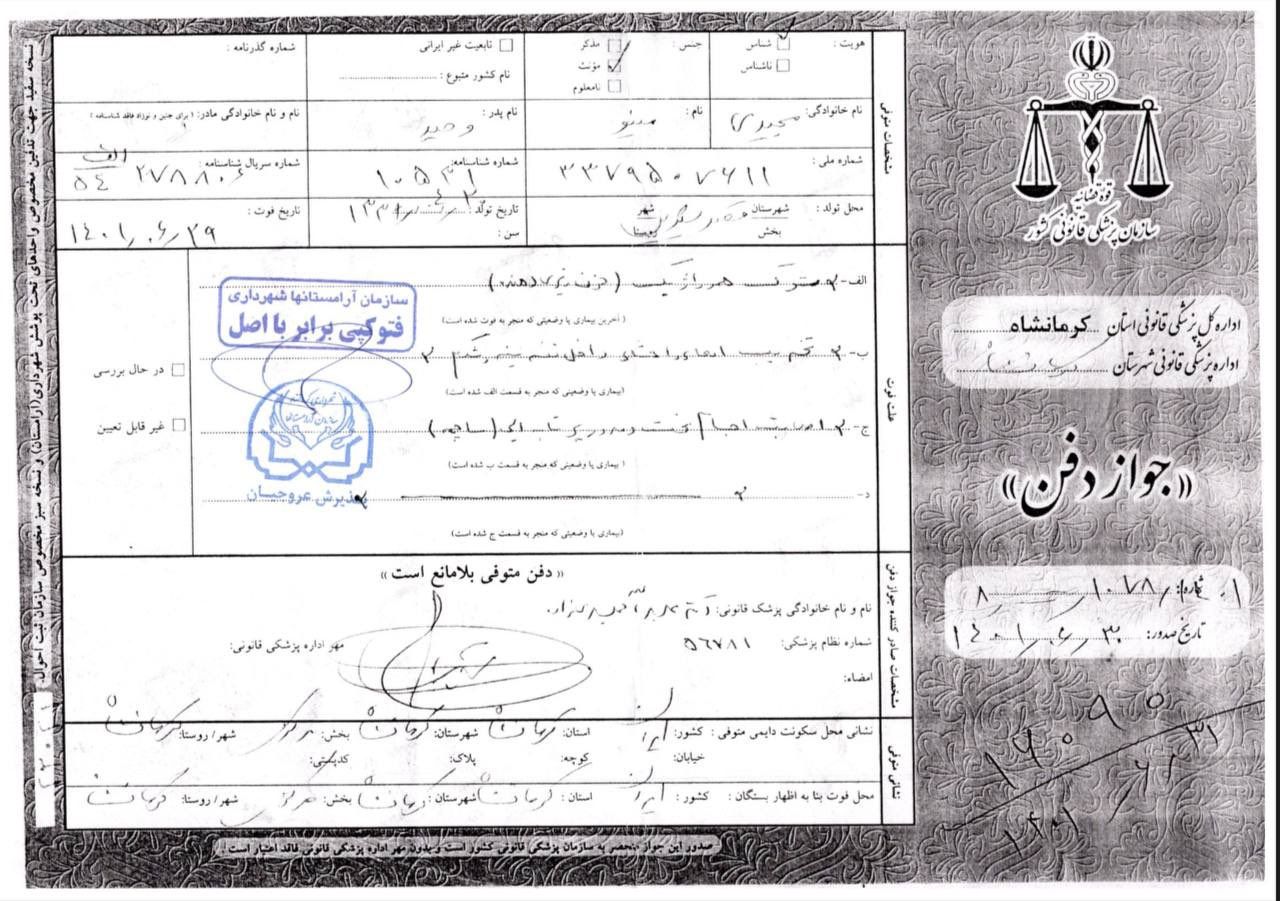 قوه قضائیه
سازمان پزشکی قانونی کشور
اداره کل پزشکی قانونی استان کرمانشاه
اداره پزشکی قانونی شهرستان
«جواز دفن»
شماره:
تاریخ صدور: ۱۴۰۱/۰۶/۳۰
مشخصات متوفی
هویت: شناس
ناشناس
جنس: مذکر
مؤنث
نامعلوم
تابعیت غیر ایرانی
نام کشور متبوع:
شماره گذرنامه:
نام خانوادگی: مجیدی
نام: مینو
نام پدر: وحید
نام و نام خانوادگی مادر: (برای جنین و نوزاد فاقد شناسنامه)
شماره ملی: ۳۳۷۹۵۰۷۶۱۱
شماره شناسنامه: ۱۰۵۳۱
شماره سریال شناسنامه: الف ۵۴
محل تولد: شهرستان شهر
بخش روستا
تاریخ تولد:
سن:
تاریخ فوت: ۱۴۰۱/۰۶/۲۹
علت فوت
الف- شوک هموراژیک (خونریزی دهنده)
(آخرین بیماری یا وضعیتی که منجر به فوت شده است)
ب-
(بیماری یا وضعیتی که منجر به قسمت الف شده است)
ج- اصابت اجسام سخت و پرتابه ای (ساچمه)
(بیماری یا وضعیتی که منجر به قسمت ب شده است)
د-
(بیماری یا وضعیتی که منجر به قسمت ج شده است)
در حال بررسی
غیر قابل تعیین
سازمان آرامستانها شهرداری
فتوکپی برابر با اصل
پذیرش عروجیان
مشخصات صادر کننده جواز دفن
«دفن متوفی بلامانع است»
نام و نام خانوادگی پزشک قانونی:
شماره نظام پزشکی: ۵۶۷۸۱
مهر اداره پزشکی قانونی:
امضاء:
نشانی متوفی
نشانی محل سکونت دایمی متوفی: کشور: ایران استان: کرمانشاه شهرستان: کرمانشاه بخش: مرکزی شهر/روستا: کرمانشاه
خیابان: کوچه: پلاک: کدپستی:
محل فوت بنا به اظهار بستگان: کشور: ایران استان: کرمانشاه شهرستان: کرمانشاه بخش: مرکزی شهر/روستا: کرمانشاه
صدور این جواز منحصر به سازمان پزشکی قانونی کشور است و بدون مهر اداره پزشکی قانونی فاقد اعتبار است.
نسخه سفید جهت تدفین مخصوص واحدهای تحت پوشش شهرداری (آرامستان) و نسخه سبز مخصوص سازمان ثبت احوال.